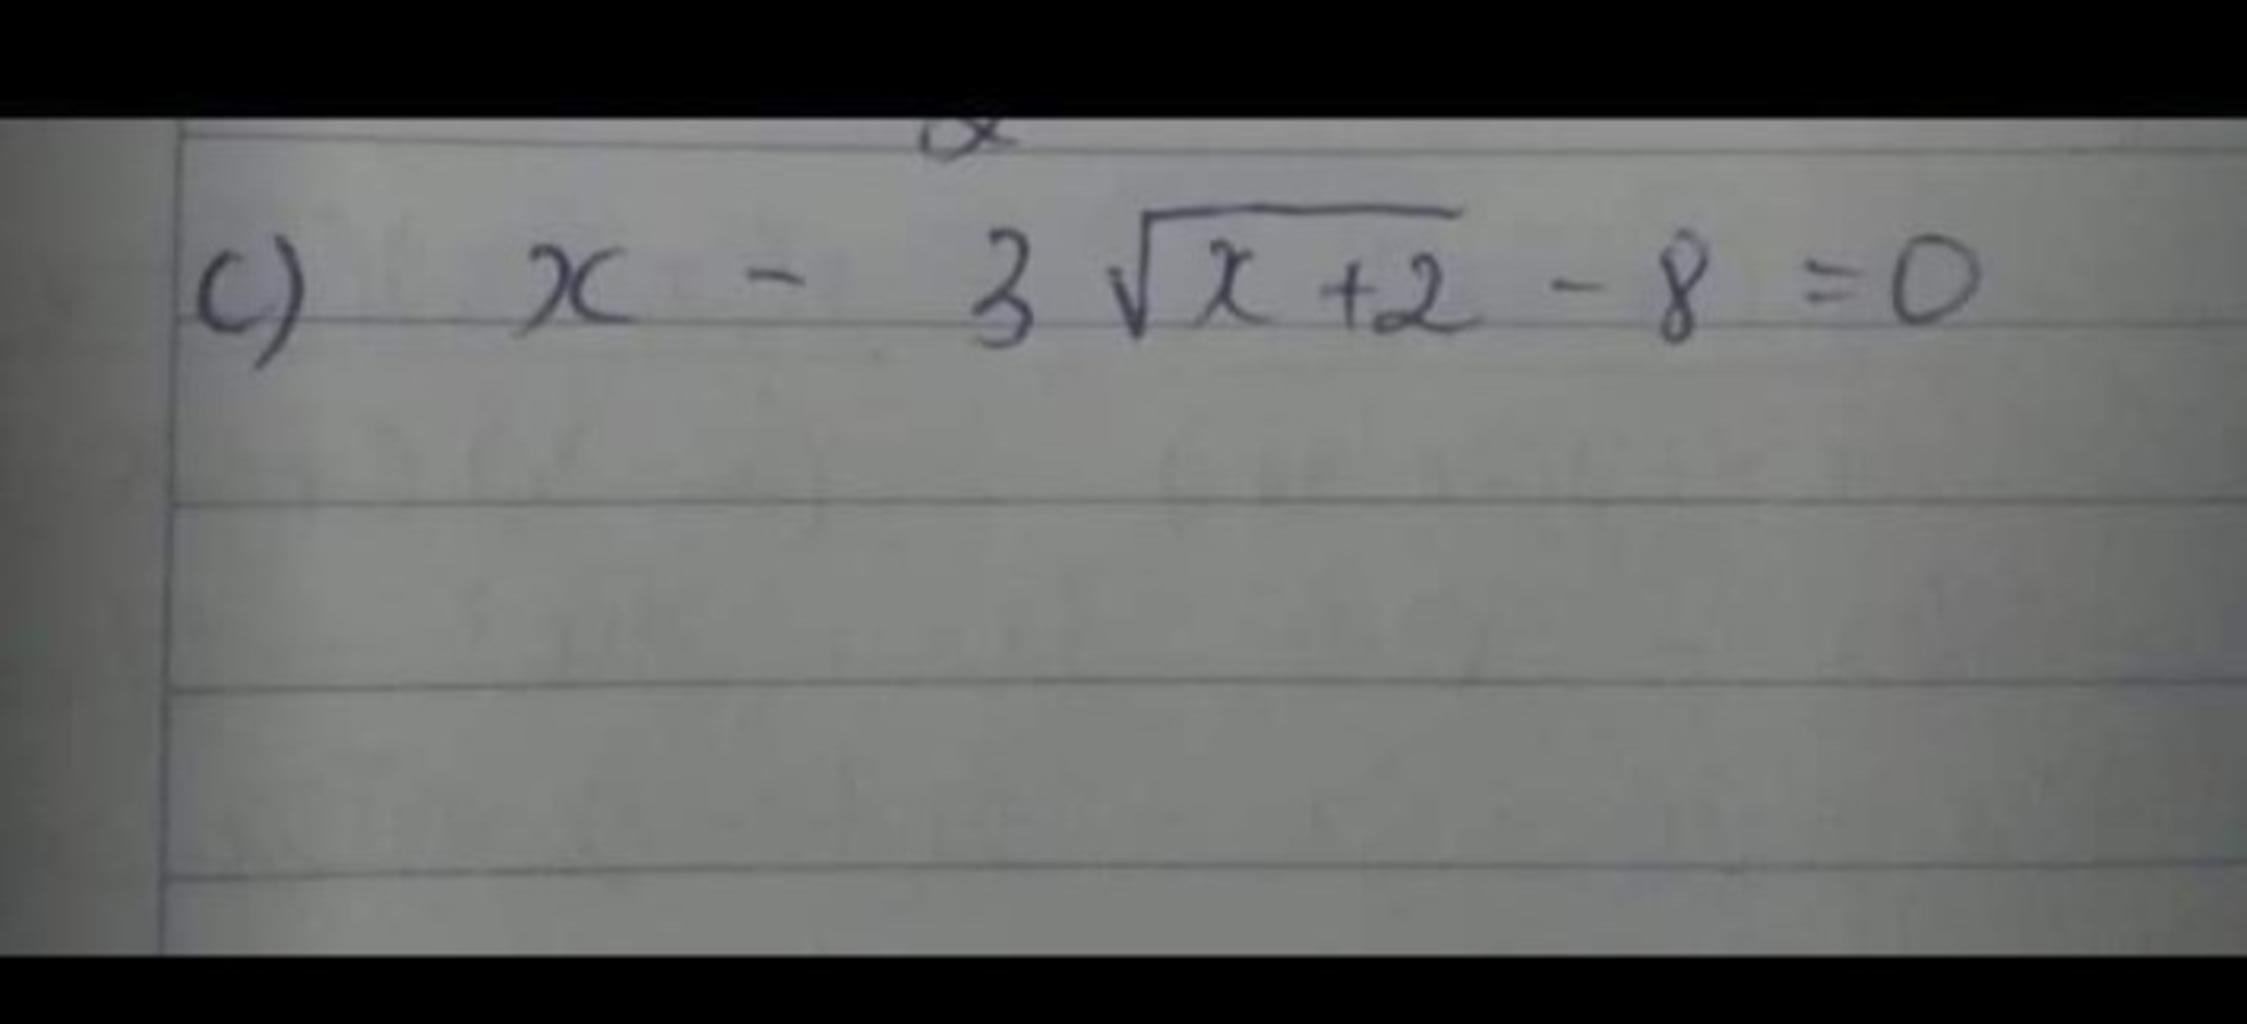 c) x - 3 √(x+2) - 8 = 0